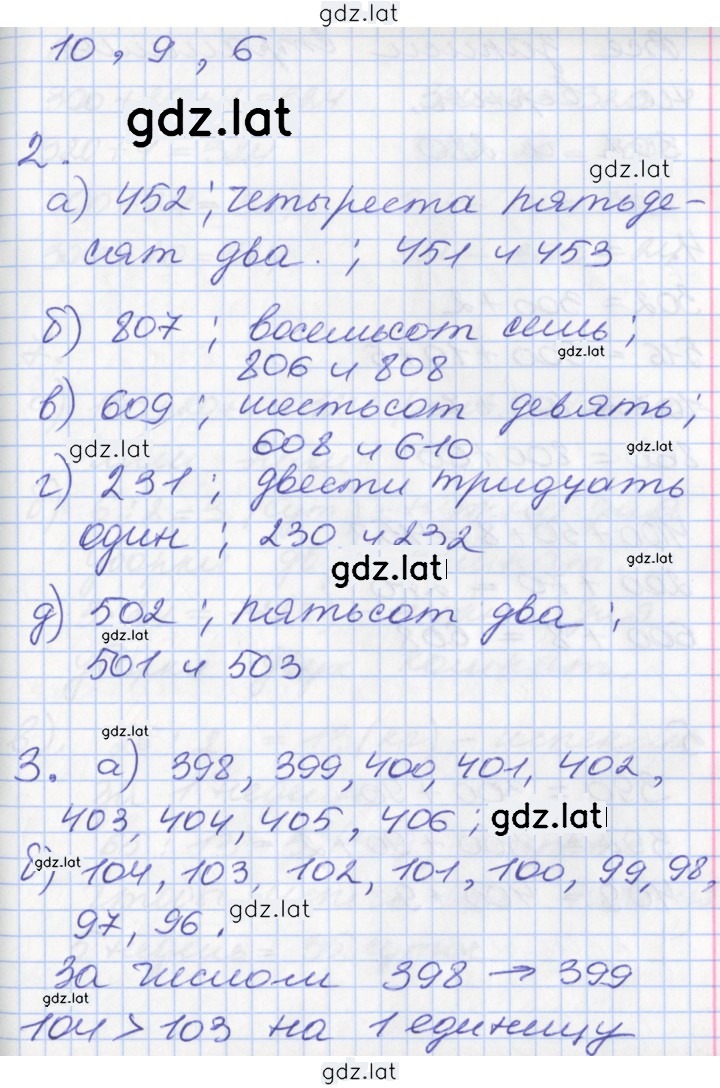 gdz.lat
10, 9, 6
gdz.lat
2.
gdz.lat
а) 452; четыреста пятьде-
сят два.; 451 и 453
б) 807; восемьсот семь;
gdz.lat
806 и 808
в) 609; шестьсот девять;
gdz.lat 608 и 610 gdz.lat
г) 231; двести тридцать
один; 230 и 232
gdz.lat gdz.lat
д) 502; пятьсот два;
gdz.lat
501 и 503
gdz.lat
3. а) 398, 399, 400, 401, 402,
403, 404, 405, 406; gdz.lat
gdz.lat
б) 104, 103, 102, 101, 100, 99, 98,
97, 96. gdz.lat
За числом 398 → 399
gdz.lat
104 > 103 на 1 единицу
gdz.lat